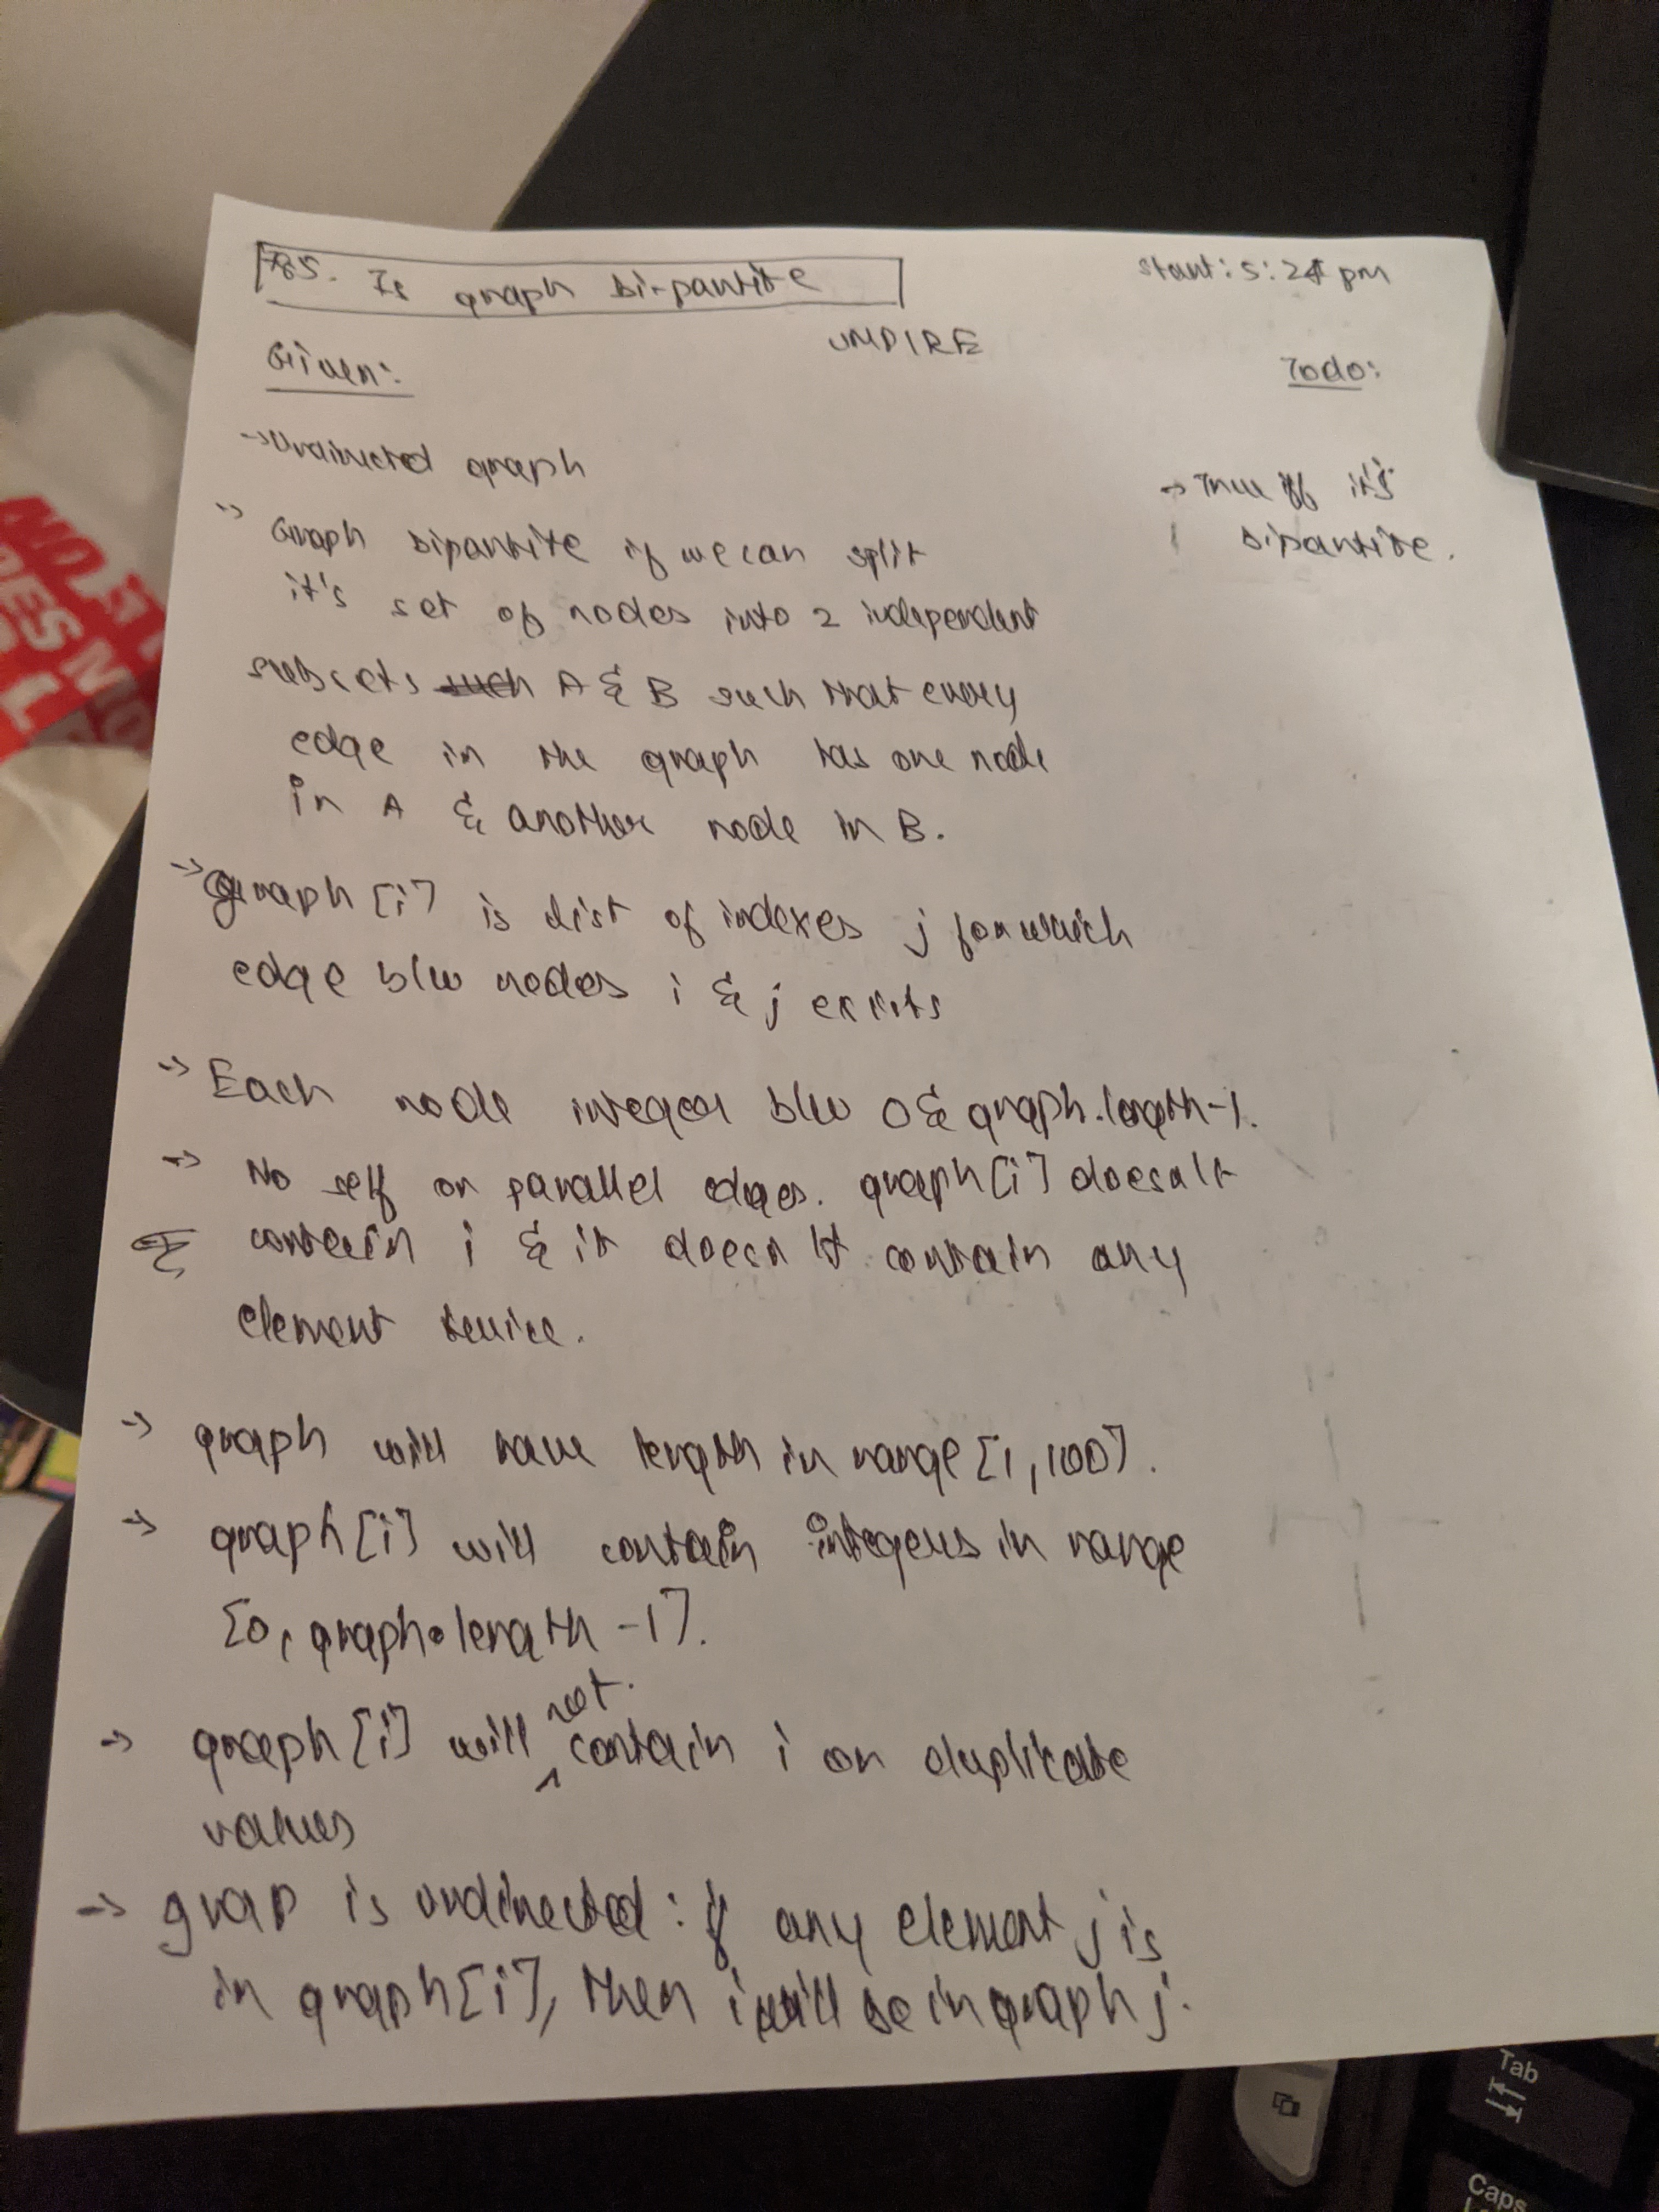 785. Is graph bi-partite
start: 5:24 pm
UMPIRE
Given:
Todo:
→ Undirected graph
→ True iff it's
bipartite.
→ Graph bipartite if we can split
it's set of nodes into 2 independent
subsets such A & B such that every
edge in the graph has one node
in A & another node in B.
→ graph [i] is list of indexes j for which
edge b/w nodes i & j exists
→ Each node integer b/w 0 & graph.length-1.
→ No self or parallel edges. graph[i] doesn't
contain i & it doesn't contain any
element twice.
→ graph will have length in range [1, 100].
→ graph[i] will contain integers in range
[0, graph.length -1].
→ graph[i] will not contain i or duplicate
values
→ grap is undirected: if any element j is
in graph[i], then i will be in graph j.
NO
RES
Tab
Caps